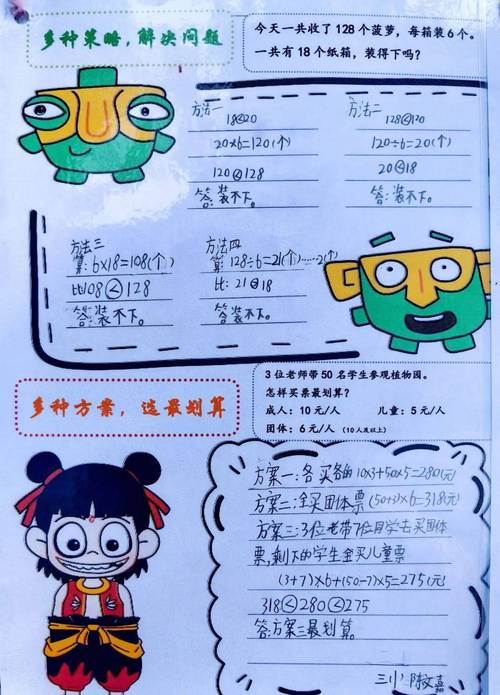 多种策略,解决问题
今天一共收了128个菠萝,每箱装6个。
一共有18个纸箱,装得下吗?
方法一
18<20
20×6=120(个)
120<128
答:装不下。
方法二
128<120
120÷6=20(个)
20<18
答:装不下。
方法三
算:6×18=108(个)
比108<128
答:装不下。
方法四
算:128÷6=21(个)……2(个)
比:21 18
答:装不下。
多种方案,选最划算
3位老师带50名学生参观植物园。
怎样买票最划算?
成人:10元/人 儿童:5元/人
团体:6元/人(10人及以上)
方案一:各买各的10×3+50×5=280(元)
方案二:全买团体票(50+3)×6=318(元)
方案三:3位老带7位同学去买团体
票,剩下的学生全买儿童票
(3+7)×6+(50-7)×5=275(元)
318<280<275
答:方案三最划算。
三小 陈文嘉